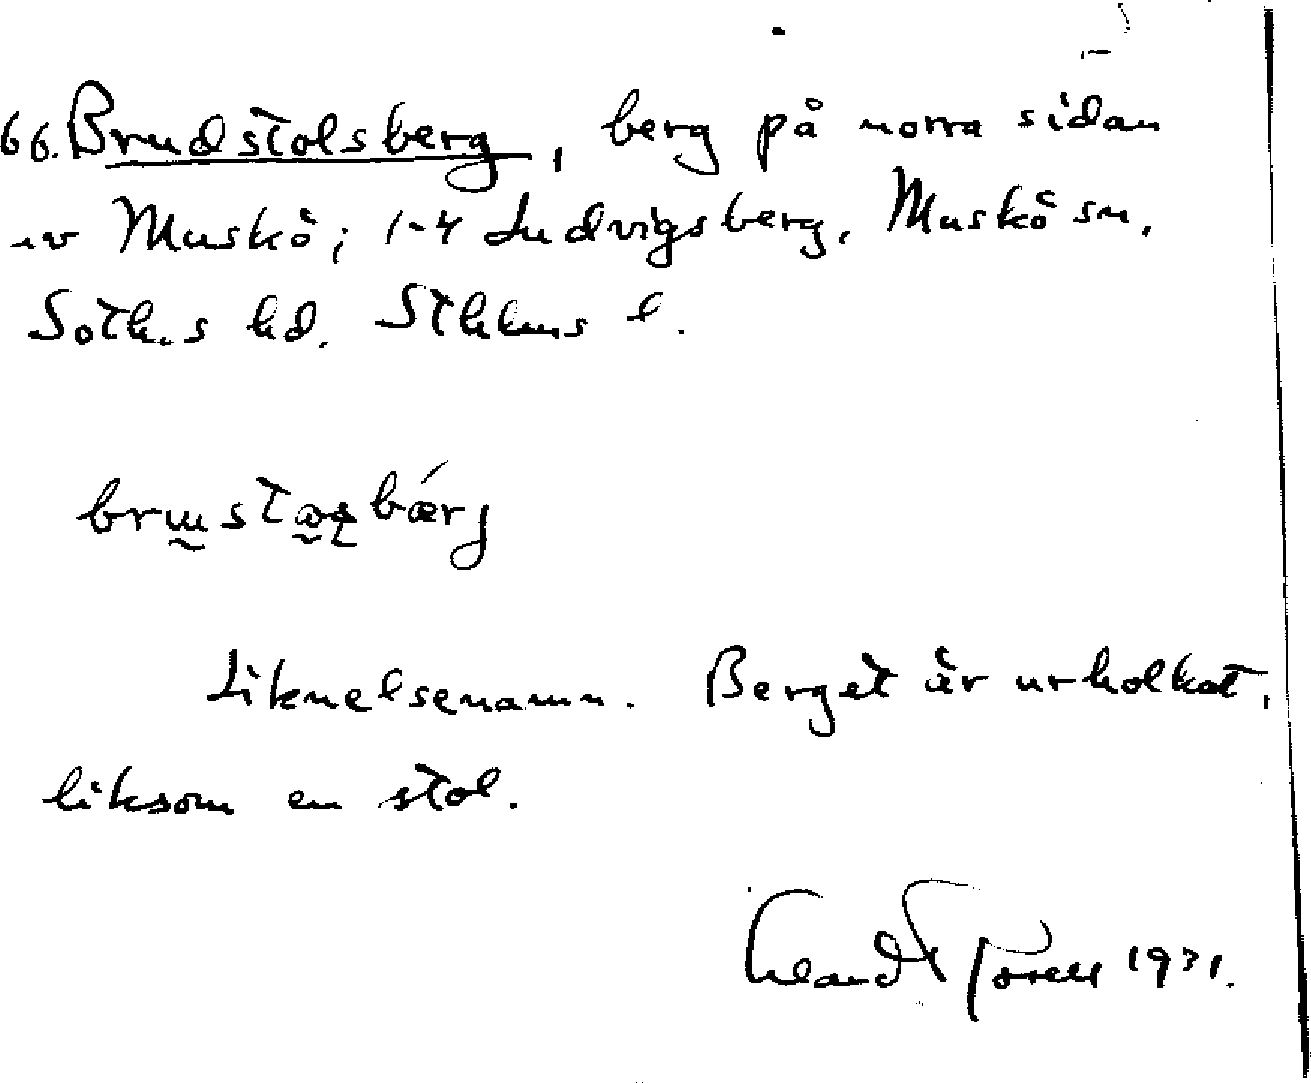 66. Brudstolsberg, berg på norra sidan
av Muskö; 1-4 Ludvigsberg, Muskö sn,
Soth.s hd. Sthlms l.
Liknelsenamn. Berget är urholkat,
liksom en stol.
1931.